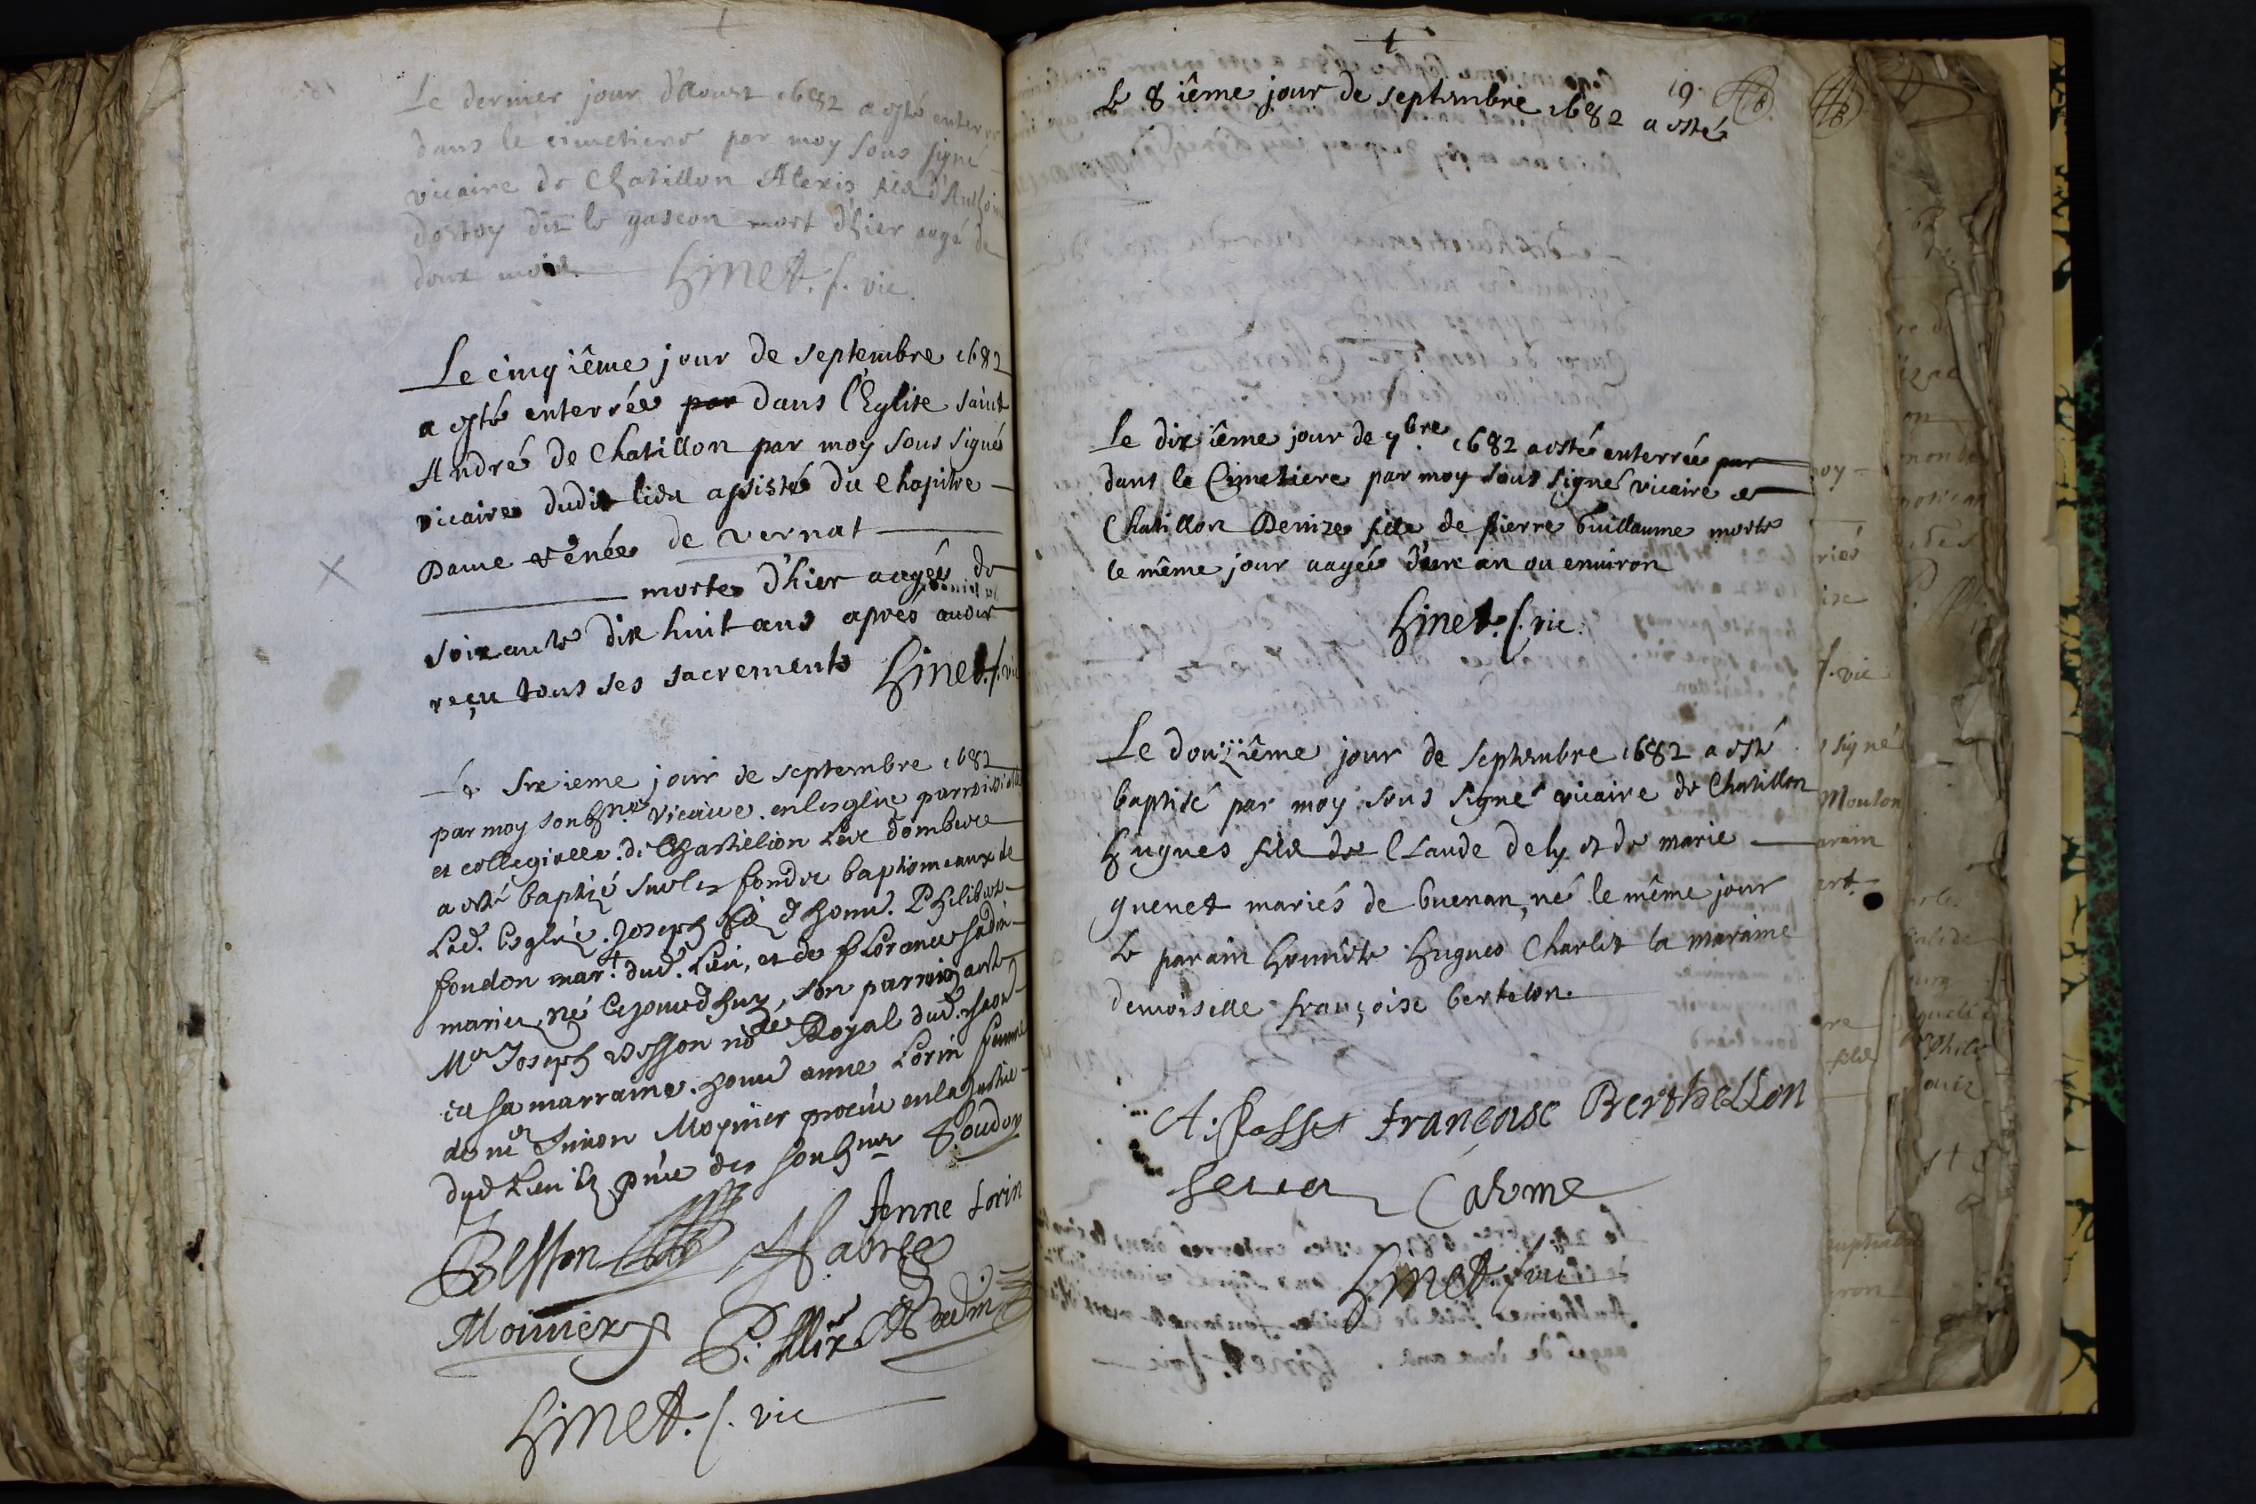 Le dernier jour d'Aoust 1682 a esté enterré
dans le cimetiere par moy sous signé
vicaire de Chatillon Alexis fils d'Anthoine
dit le gascon mort d'hier aagé de
deux mois. Hinet. s. vic.
Le cinqième jour de septembre 1682
a esté enterrée par dans l'Eglise saint
André de Chatillon par moy sous signé
vicaire dudit lieu assisté du Chapitre
Dame Renée de vernat
morte d'hier aagée de
soixante dix huit ans apres avoir
reçu tous ses sacrements Hinet. s. vic
Le sixieme jour de septembre 1682
par moy soubsné vicaire. en lesglize parroissialle
et collegialle. de Chastillion Lès dombes
a esté baptizé sur les fondz baptismeaux de
Lad. Esglize. Joseph filz d'honn. Philibert
foudon mar.t dud. Lieu, et de fLorance Jadin
mariez, né cejourd'huy, son parrain a esté
Me Joseph Besson nore Royal dud. chaon
et sa marraine. honn. anne Lorin femme
de me Simon Moynier procur. en la Justice
dud Lieu Ez pñce des soubsnez Foudon
Anne Lorin
Besson fabre
Moinier P. Allix Jadin
Hinet. s. vic
19.
Le 8 ième jour de septembre 1682 a esté
Le dixième jour de 7bre 1682 a esté enterrée par
dans le Cimetiere par moy sous signé vicaire de
Chatillon Denize fille de pierre Guillaume morte
le même jour aagée d'un an ou environ
Hinet. s. vic.
Le douzième jour de septembre 1682 a esté
baptisé par moy sous signé vicaire de Chatillon
Hugues fils de Claude dely et de marie
quenet mariés de buenan, né le même jour
le parain honnête Hugues Charlet la maraine
demoiselle françoise bertelon
Francoise Berthellon
Carme
Hinet. s. vic